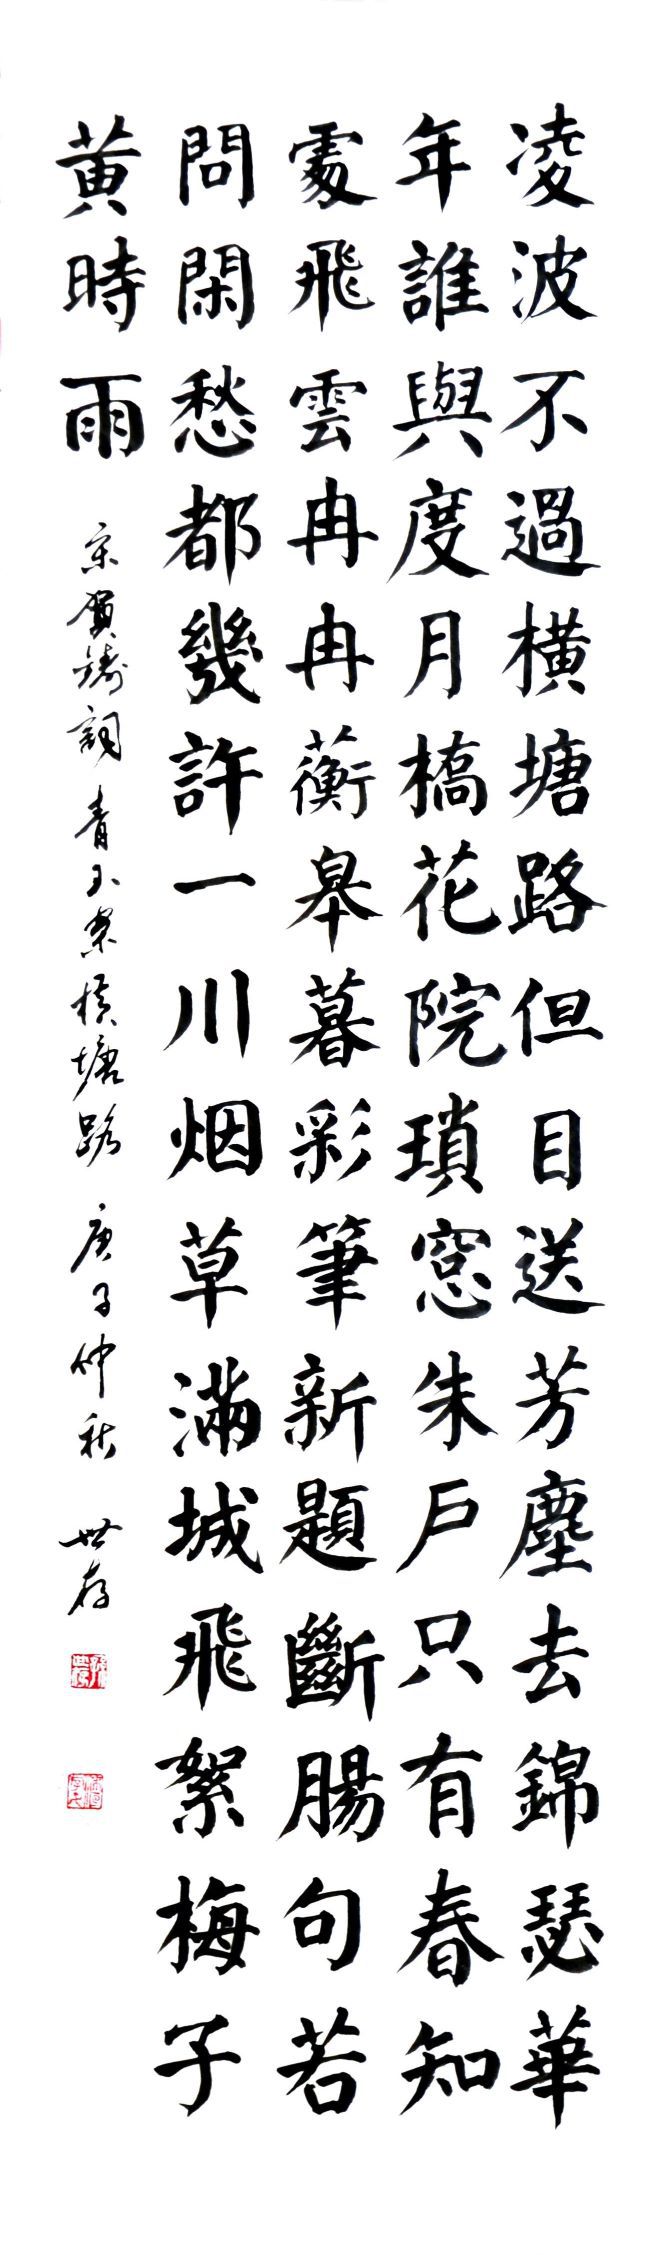 凌波不過橫塘路但目送芳塵去錦瑟華
年誰與度月橋花院瑣窓朱户只有春知
處飛雲冉冉蘅皋暮彩筆新題斷腸句若
問閑愁都幾許一川烟草滿城飛絮梅子
黄時雨
宋賀鑄詞青玉案橫塘路 庚子仲秋 世存